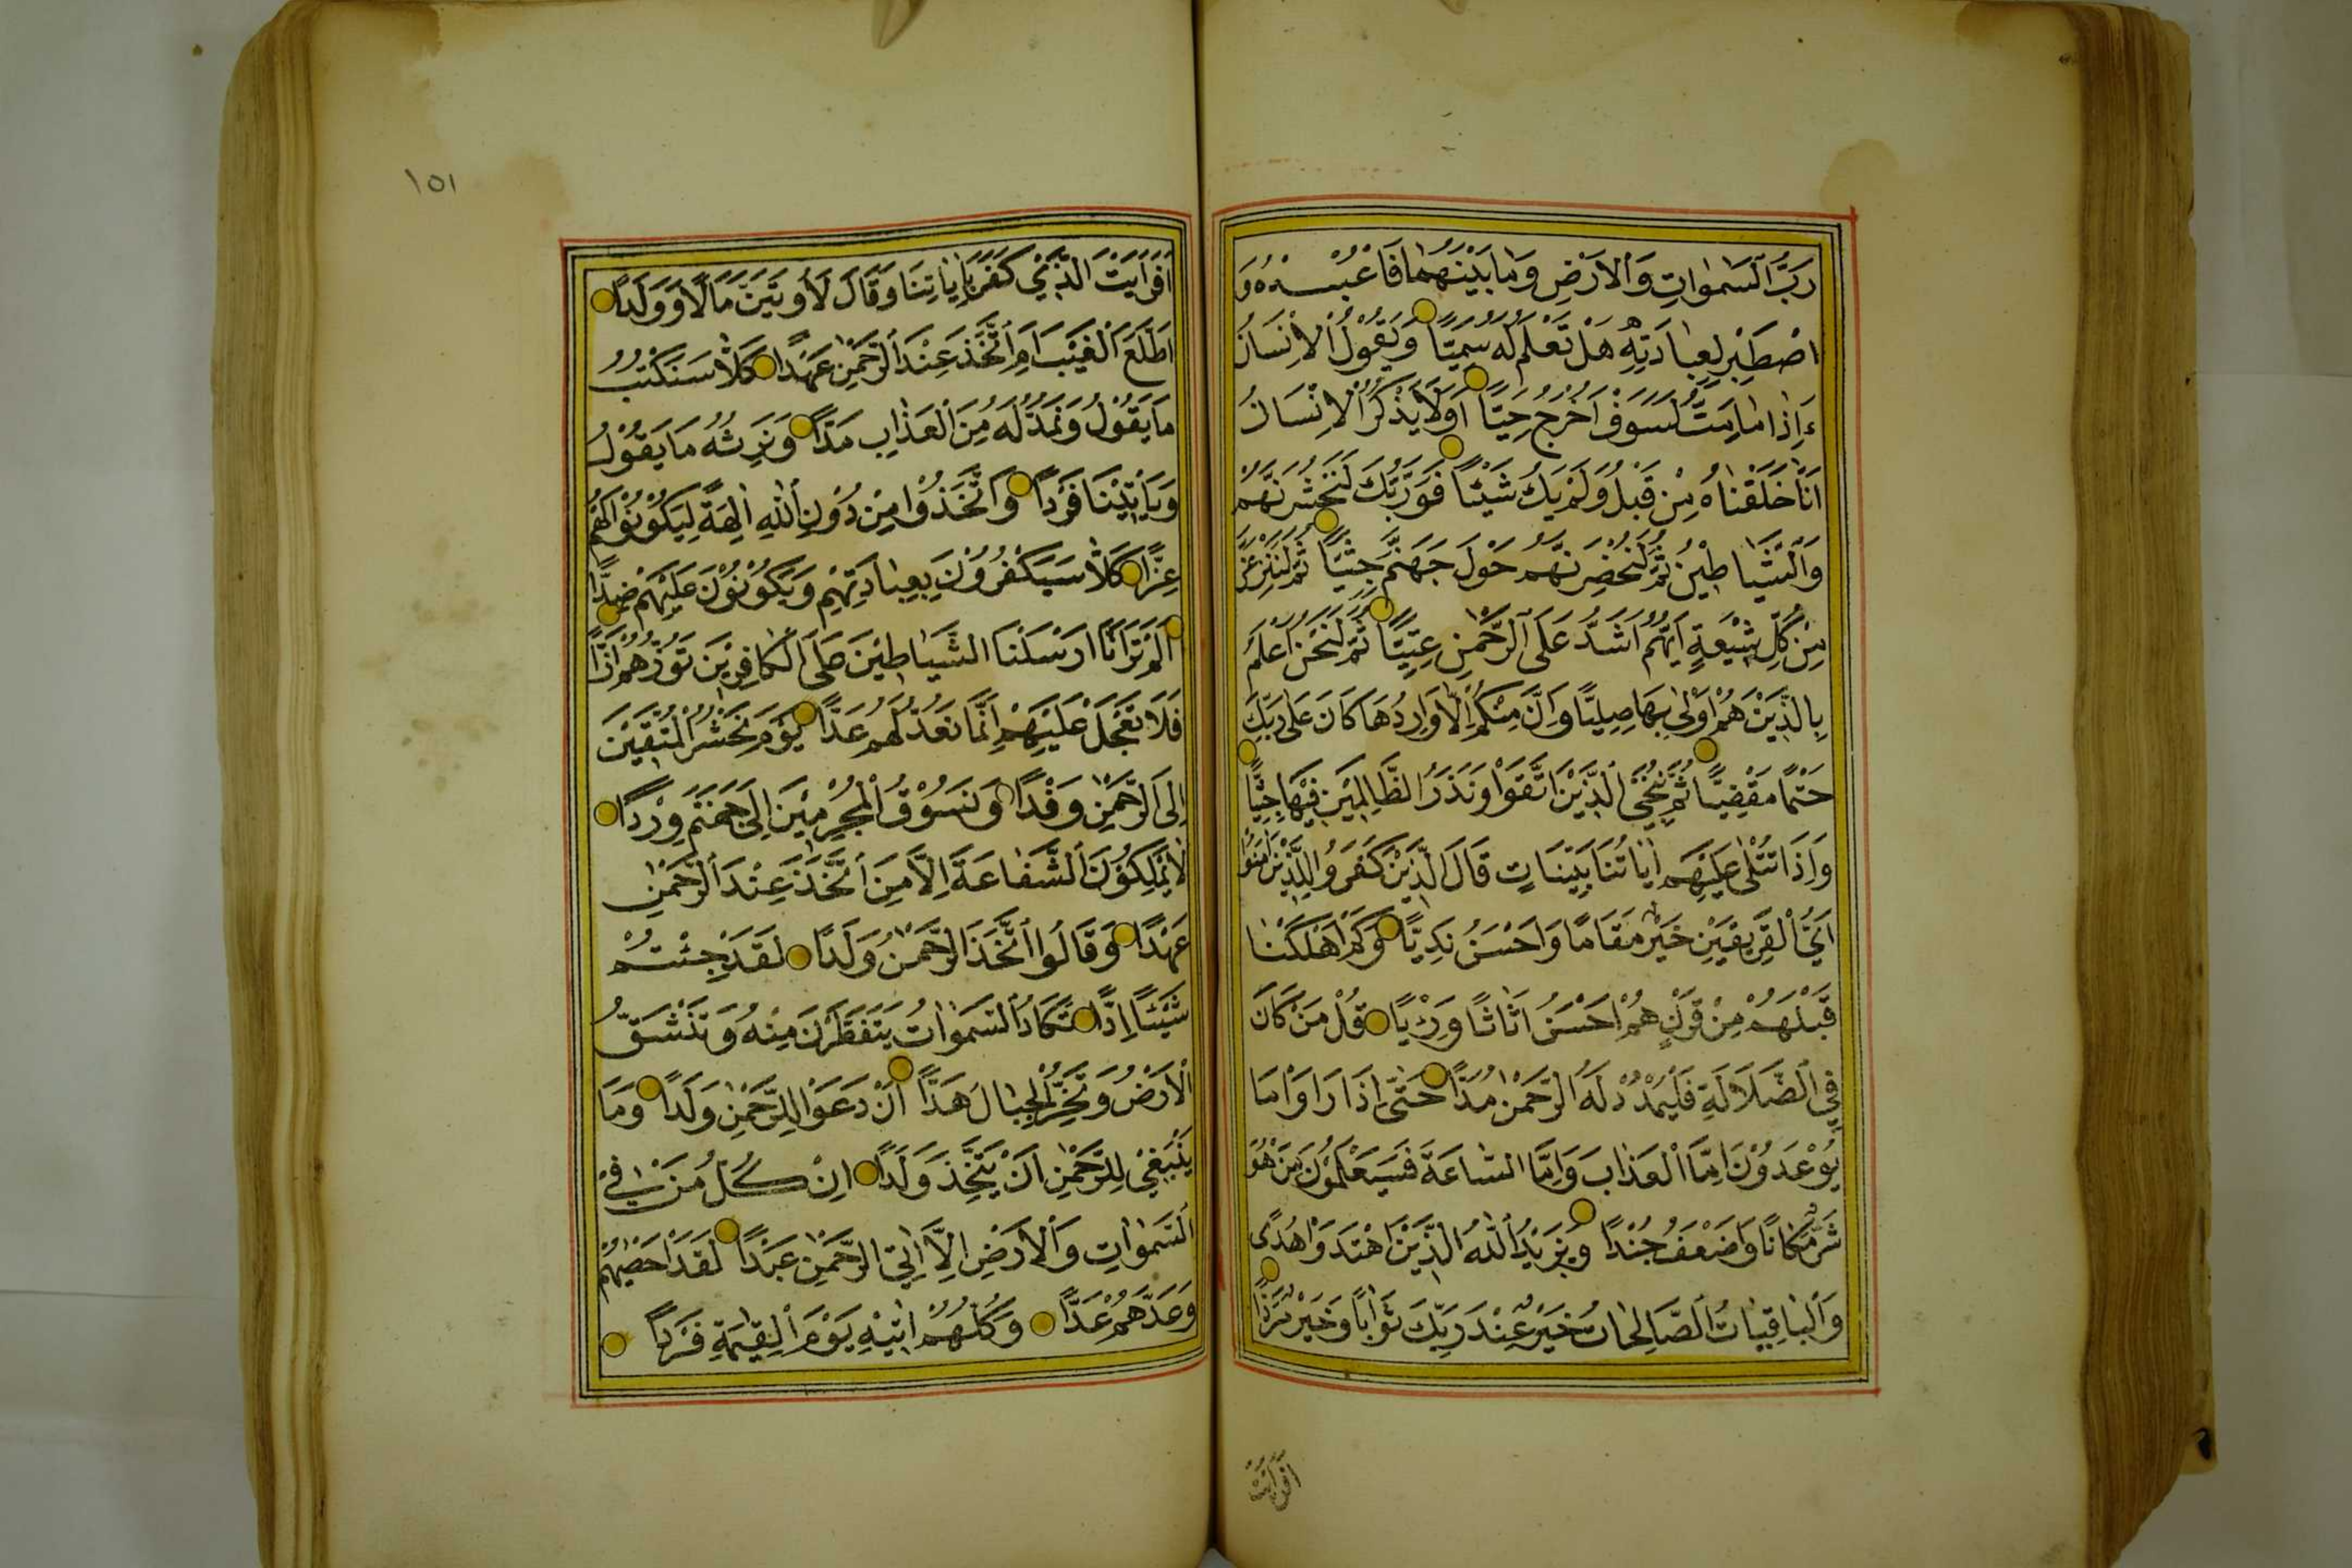 رَبُّ السَّمٰوَاتِ وَالْاَرْضِ وَمَا بَيْنَهُمَا فَاعْبُدْهُ وَ
اصْطَبِرْ لِعِبَادَتِهِ هَلْ تَعْلَمُ لَهُ سَمِيًّا وَيَقُوْلُ الْاِنْسَانُ
ءَاِذَا مَا مِتُّ لَسَوْفَ اُخْرَجُ حَيًّا اَوَلَا يَذْكُرُ الْاِنْسَانُ
اَنَّا خَلَقْنَاهُ مِنْ قَبْلُ وَلَمْ يَكُ شَيْئًا فَوَرَبِّكَ لَنَحْشُرَنَّهُمْ
وَالشَّيَاطِيْنَ ثُمَّ لَنُحْضِرَنَّهُمْ حَوْلَ جَهَنَّمَ جِثِيًّا ثُمَّ لَنَنْزِعَنَّ
مِنْ كُلِّ شِيْعَةٍ اَيُّهُمْ اَشَدُّ عَلَى الرَّحْمٰنِ عِتِيًّا ثُمَّ لَنَحْنُ اَعْلَمُ
بِالَّذِيْنَ هُمْ اَوْلٰى بِهَا صِلِيًّا وَاِنْ مِنْكُمْ اِلَّا وَارِدُهَا كَانَ عَلٰى رَبِّكَ
حَتْمًا مَقْضِيًّا ثُمَّ نُنَجِّي الَّذِيْنَ اتَّقَوْا وَنَذَرُ الظَّالِمِيْنَ فِيْهَا جِثِيًّا
وَاِذَا تُتْلٰى عَلَيْهِمْ اٰيَاتُنَا بَيِّنَاتٍ قَالَ الَّذِيْنَ كَفَرُوا لِلَّذِيْنَ اٰمَنُوْا
اَيُّ الْفَرِيْقَيْنِ خَيْرٌ مَقَامًا وَاَحْسَنُ نَدِيًّا وَكَمْ اَهْلَكْنَا
قَبْلَهُمْ مِنْ قَرْنٍ هُمْ اَحْسَنُ اَثَاثًا وَرِءْيًا قُلْ مَنْ كَانَ
فِي الضَّلَالَةِ فَلْيَمْدُدْ لَهُ الرَّحْمٰنُ مَدًّا حَتّٰى اِذَا رَاَوْا مَا
يُوْعَدُوْنَ اِمَّا الْعَذَابَ وَاِمَّا السَّاعَةَ فَسَيَعْلَمُوْنَ مَنْ هُوَ
شَرٌّ مَكَانًا وَاَضْعَفُ جُنْدًا وَيَزِيْدُ اللّٰهُ الَّذِيْنَ اهْتَدَوْا هُدًى
وَالْبَاقِيَاتُ الصَّالِحَاتُ خَيْرٌ عِنْدَ رَبِّكَ ثَوَابًا وَخَيْرٌ مَرَدًّا
اَفَرَاَيْتَ
١٥١
اَفَرَاَيْتَ الَّذِيْ كَفَرَ بِاٰيَاتِنَا وَقَالَ لَاُوتَيَنَّ مَالًا وَوَلَدًا
اَطَّلَعَ الْغَيْبَ اَمِ اتَّخَذَ عِنْدَ الرَّحْمٰنِ عَهْدًا كَلَّا سَنَكْتُبُ
مَا يَقُوْلُ وَنَمُدُّ لَهُ مِنَ الْعَذَابِ مَدًّا وَنَرِثُهُ مَا يَقُوْلُ
وَيَاْتِيْنَا فَرْدًا وَاتَّخَذُوْا مِنْ دُوْنِ اللّٰهِ اٰلِهَةً لِيَكُوْنُوْا لَهُمْ
عِزًّا كَلَّا سَيَكْفُرُوْنَ بِعِبَادَتِهِمْ وَيَكُوْنُوْنَ عَلَيْهِمْ ضِدًّا
اَلَمْ تَرَ اَنَّا اَرْسَلْنَا الشَّيَاطِيْنَ عَلَى الْكَافِرِيْنَ تَؤُزُّهُمْ اَزًّا
فَلَا تَعْجَلْ عَلَيْهِمْ اِنَّمَا نَعُدُّ لَهُمْ عَدًّا يَوْمَ نَحْشُرُ الْمُتَّقِيْنَ
اِلَى الرَّحْمٰنِ وَفْدًا وَنَسُوْقُ الْمُجْرِمِيْنَ اِلٰى جَهَنَّمَ وِرْدًا
لَا يَمْلِكُوْنَ الشَّفَاعَةَ اِلَّا مَنِ اتَّخَذَ عِنْدَ الرَّحْمٰنِ
عَهْدًا وَقَالُوا اتَّخَذَ الرَّحْمٰنُ وَلَدًا لَقَدْ جِئْتُمْ
شَيْئًا اِدًّا تَكَادُ السَّمٰوَاتُ يَتَفَطَّرْنَ مِنْهُ وَتَنْشَقُّ
الْاَرْضُ وَتَخِرُّ الْجِبَالُ هَدًّا اَنْ دَعَوْا لِلرَّحْمٰنِ وَلَدًا وَمَا
يَنْبَغِيْ لِلرَّحْمٰنِ اَنْ يَتَّخِذَ وَلَدًا اِنْ كُلُّ مَنْ فِي
السَّمٰوَاتِ وَالْاَرْضِ اِلَّا اٰتِي الرَّحْمٰنِ عَبْدًا لَقَدْ اَحْصٰيهُمْ
وَعَدَّهُمْ عَدًّا وَكُلُّهُمْ اٰتِيْهِ يَوْمَ الْقِيٰمَةِ فَرْدًا